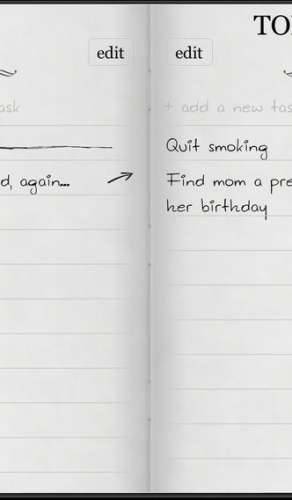 edit
d, again...
TO
edit
+ add a new tas
Quit smoking
Find mom a pre
her birthday